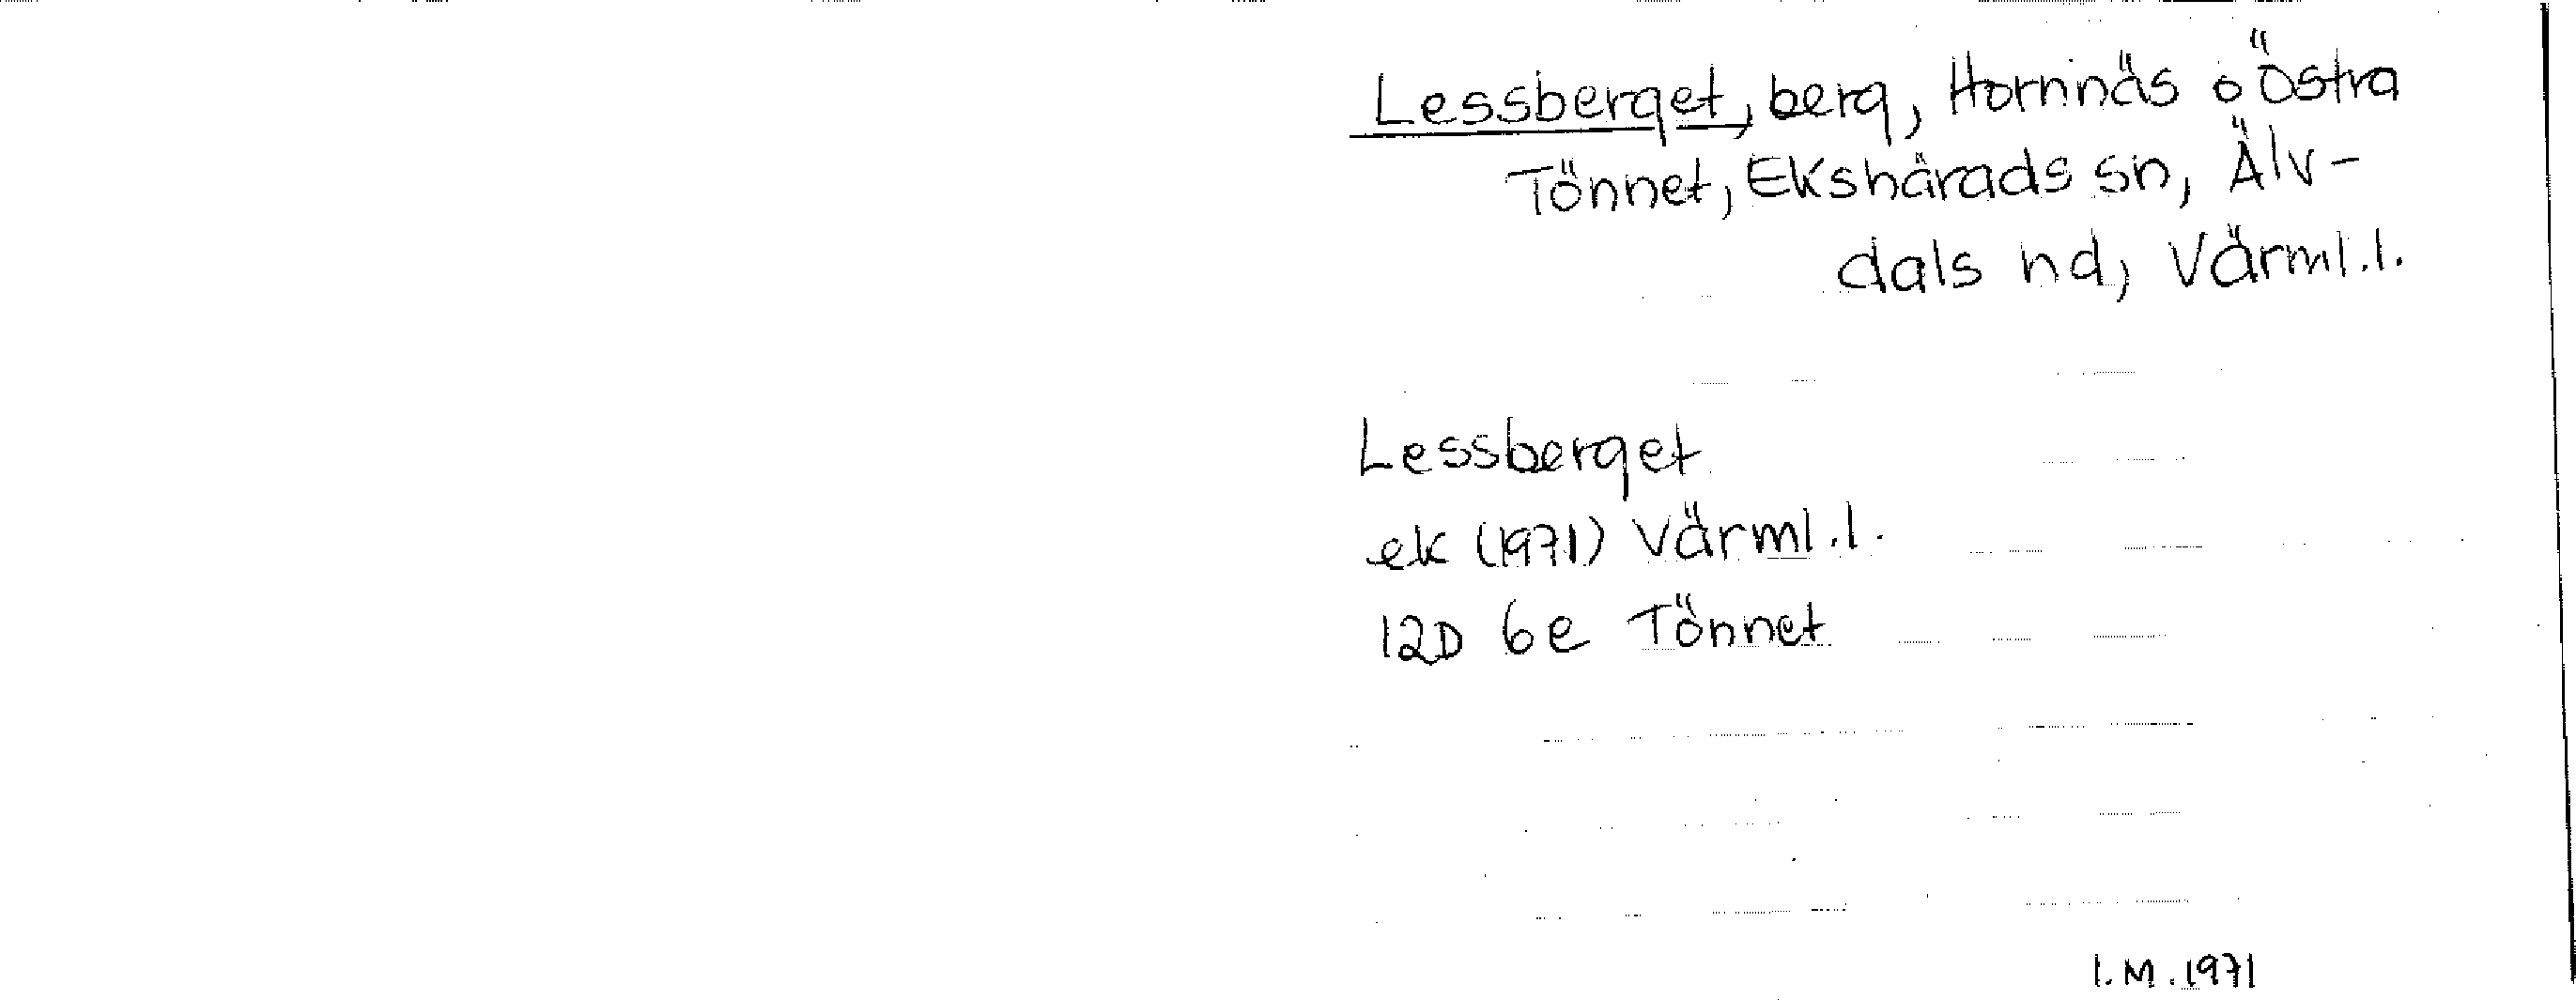 Lessberget, berg, Hornnäs o Östra
Tönnet, Ekshärads sn, Älv-
dals hd, Värml.l.
Lessberget
ek (1971) Värml.l.
12D 6e Tönnet
I.M. 1971